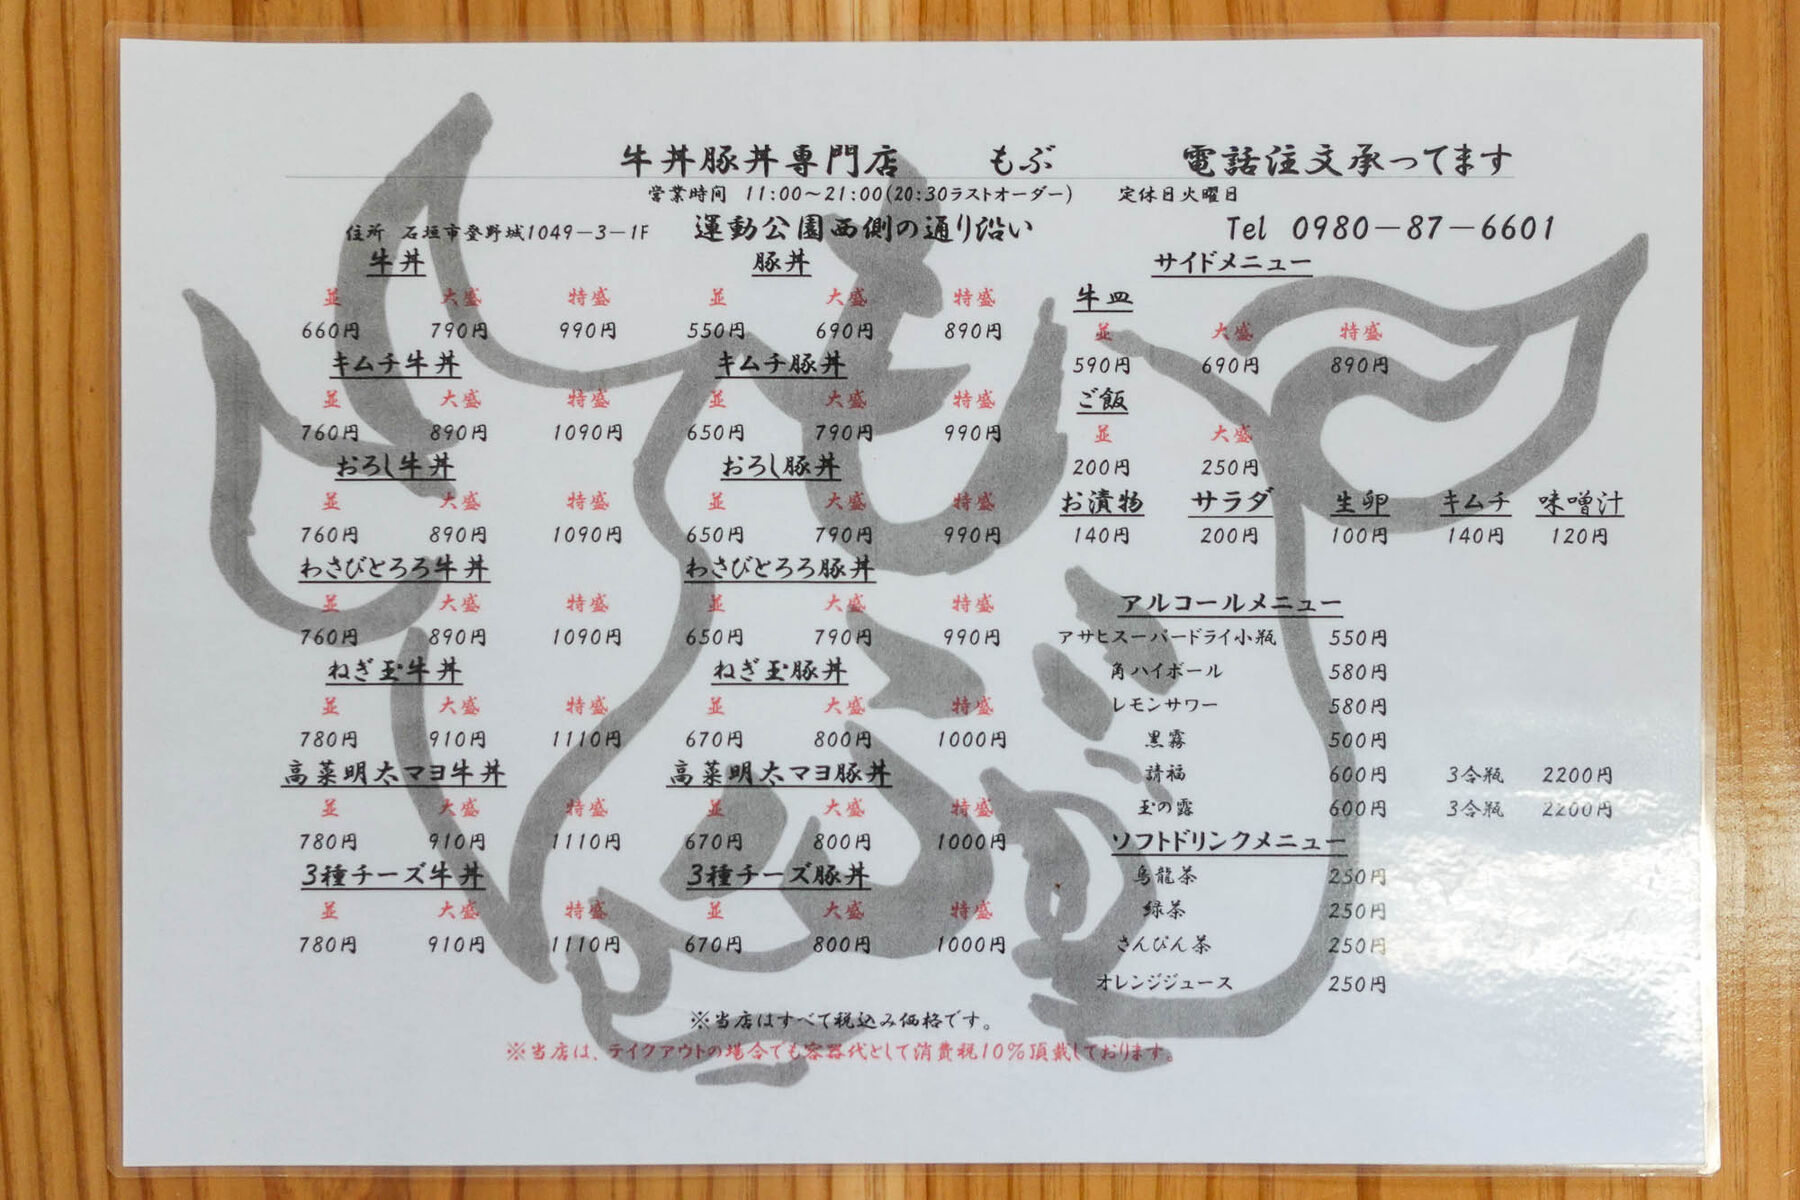 牛丼豚丼専門店　もぶ　電話注文承ってます
営業時間 11:00～21:00(20:30ラストオーダー)　定休日火曜日
住所 石垣市登野城1049－3－1F　運動公園西側の通り沿い　Tel 0980－87－6601
牛丼
並 大盛 特盛
660円 790円 990円
キムチ牛丼
並 大盛 特盛
760円 890円 1090円
おろし牛丼
並 大盛 特盛
760円 890円 1090円
わさびとろろ牛丼
並 大盛 特盛
760円 890円 1090円
ねぎ玉牛丼
並 大盛 特盛
780円 910円 1110円
高菜明太マヨ牛丼
並 大盛 特盛
780円 910円 1110円
3種チーズ牛丼
並 大盛 特盛
780円 910円 1110円
豚丼
並 大盛 特盛
550円 690円 890円
キムチ豚丼
並 大盛 特盛
650円 790円 990円
おろし豚丼
並 大盛 特盛
650円 790円 990円
わさびとろろ豚丼
並 大盛 特盛
650円 790円 990円
ねぎ玉豚丼
並 大盛 特盛
670円 800円 1000円
高菜明太マヨ豚丼
並 大盛 特盛
670円 800円 1000円
3種チーズ豚丼
並 大盛 特盛
670円 800円 1000円
サイドメニュー
牛皿
並 大盛 特盛
590円 690円 890円
ご飯
並 大盛
200円 250円
お漬物 サラダ 生卵 キムチ 味噌汁
140円 200円 100円 140円 120円
アルコールメニュー
アサヒスーパードライ小瓶 550円
角ハイボール 580円
レモンサワー 580円
黒霧 500円
請福 600円 3合瓶 2200円
玉の露 600円 3合瓶 2200円
ソフトドリンクメニュー
烏龍茶 250円
緑茶 250円
さんぴん茶 250円
オレンジジュース 250円
※当店はすべて税込み価格です。
※当店は、テイクアウトの場合でも容器代として消費税10%頂戴しております。